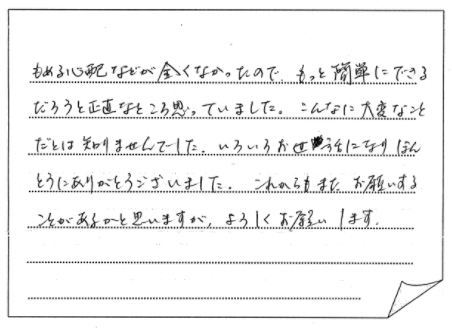 もめる心配などが全くなかったので、もっと簡単にできる
だろうと正直なところ思っていました。こんなに大変なこと
だとは知りませんでした。いろいろお世話になりほん
とうにありがとうございました。これからもまた、お願いする
ことがあるかと思いますが、よろしくお願いします。